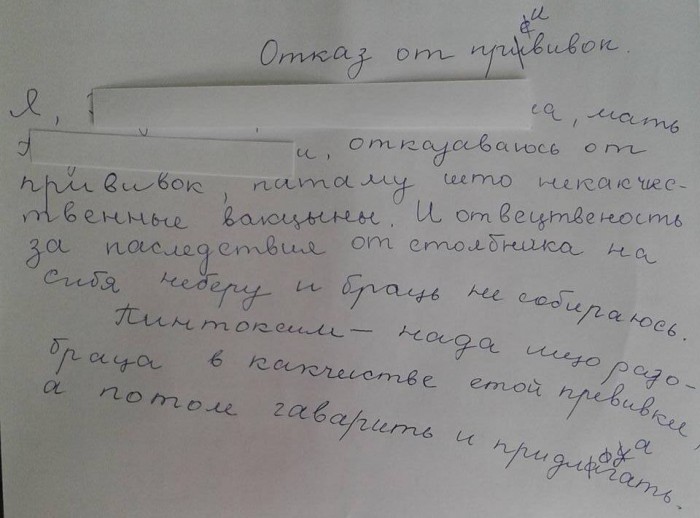 Отказ от прививок.
Я, на, мать
и, отказаваюсь от
прививок, патаму што некакчес-
твенные вакцыны. И отвецтвеность
за паследствия от столбника на
сибя неберу и браць не собираюсь.
Пинтоксим – нада ищо разо-
браца в какчистве етой превивки,
а потом гаварить и придлагать.